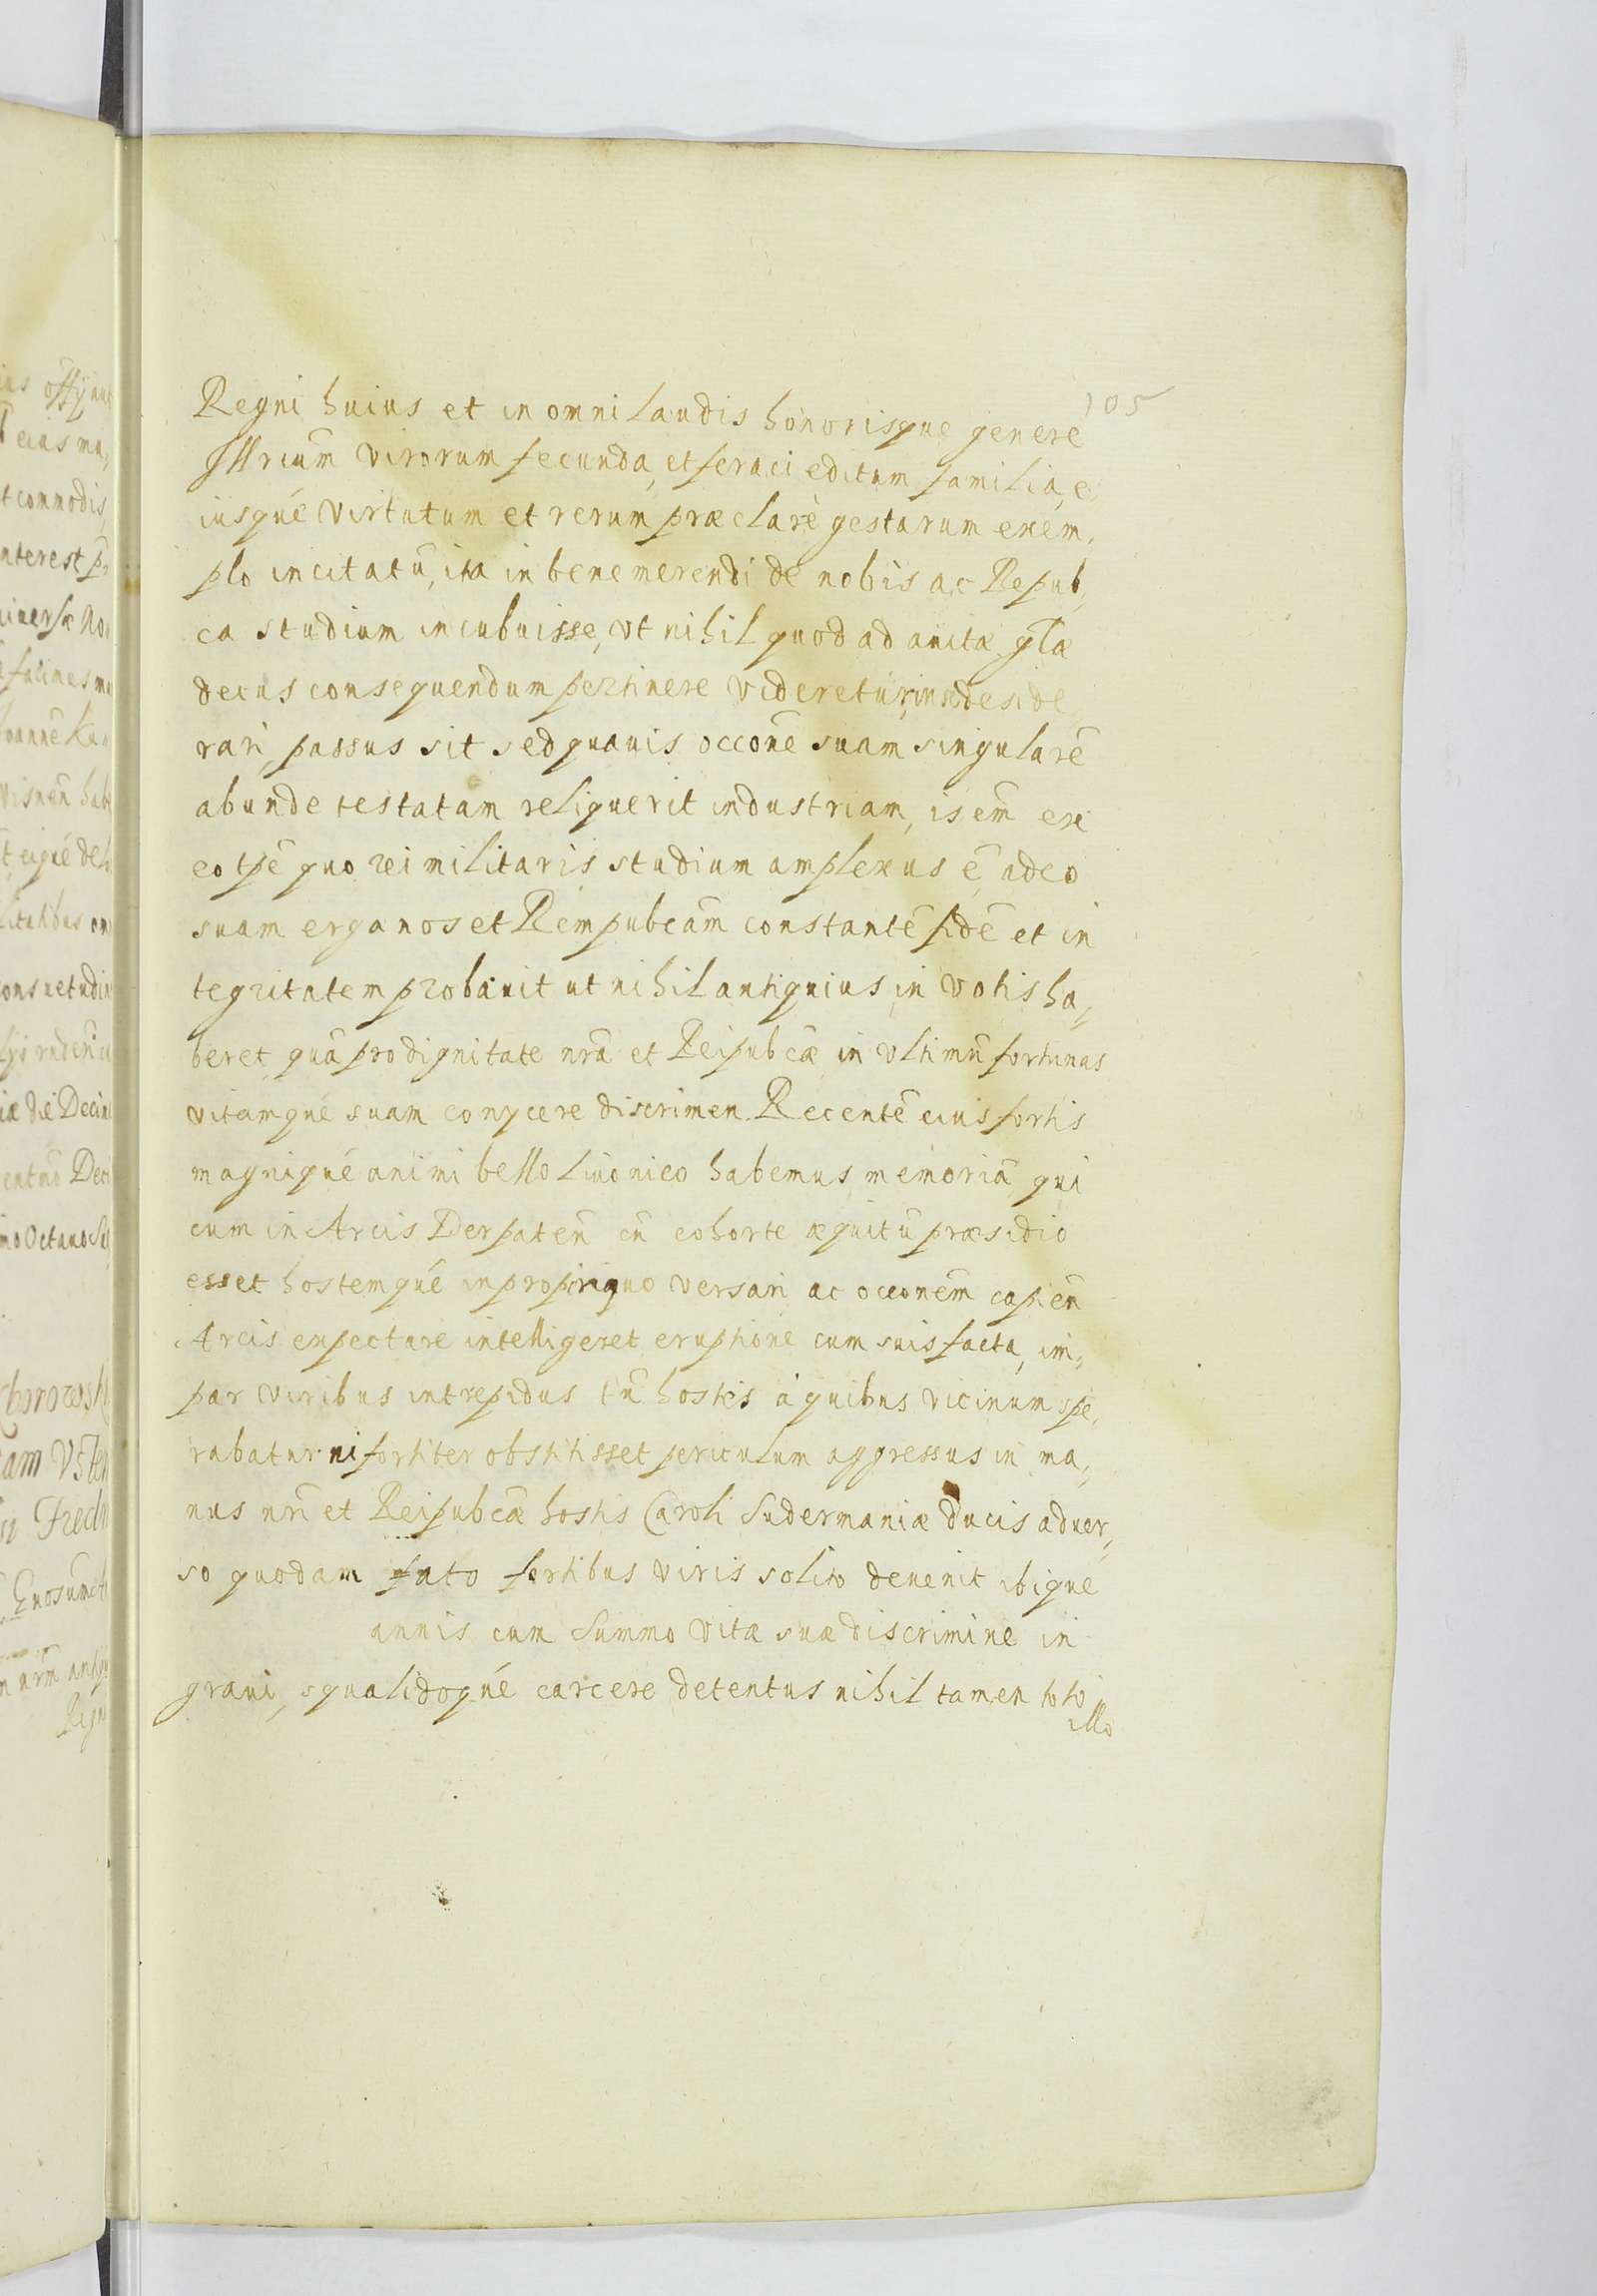 105
Regni huius et in omni laudis honorisque genere
Illrium virorum fecunda, et feraci editum familia, e
iusqué virtutum et rerum præclarè gestarum exem,
plo incitatū, ita in bene merendi de nobis ac Repub,
ca studium incubuisse, vt nihil quod ad auitæ glæ
decus consequendum pertinere videretur, in se deside
rari, passus sit sed quauis occōne suam singularē
abunde testatam reliquerit industriam, is em̄ ex
eo tpē quo rei militaris studium amplexus ē, adeo
suam erga nos et Rempubcām constantē fidē et in
tegritatem probauit ut nihil antiquius in votis ha,,
beret quā pro dignitate nrā et Reipubcæ in vltimū fortunas
vitamqué suam conycere discrimen. Recentē eius fortis
magniqué animi bello Liuonico habemus memoriā qui
cum in Arcis Derpateñ cū cohorte æquitū præsidio
esset hostemqué in propinquo versari ac occonem̄ capieñ
Arcis expectare intelligeret eruptione cum suis facta, im,,
par viribus intrepidus tn̄ hostes á quibus vicinum spe,
rabatur ni fortiter obstitisset periculum aggressus in ma,,
nus nrī et Reipubcæ hostis Caroli Sudermaniæ Ducis aduer,,
so quodam fato fortibus viris solito deuenit ibique
annis cum summo vitæ suæ discrimine in
graui, squalidoqué carcere detentus nihil tamen toto
illo